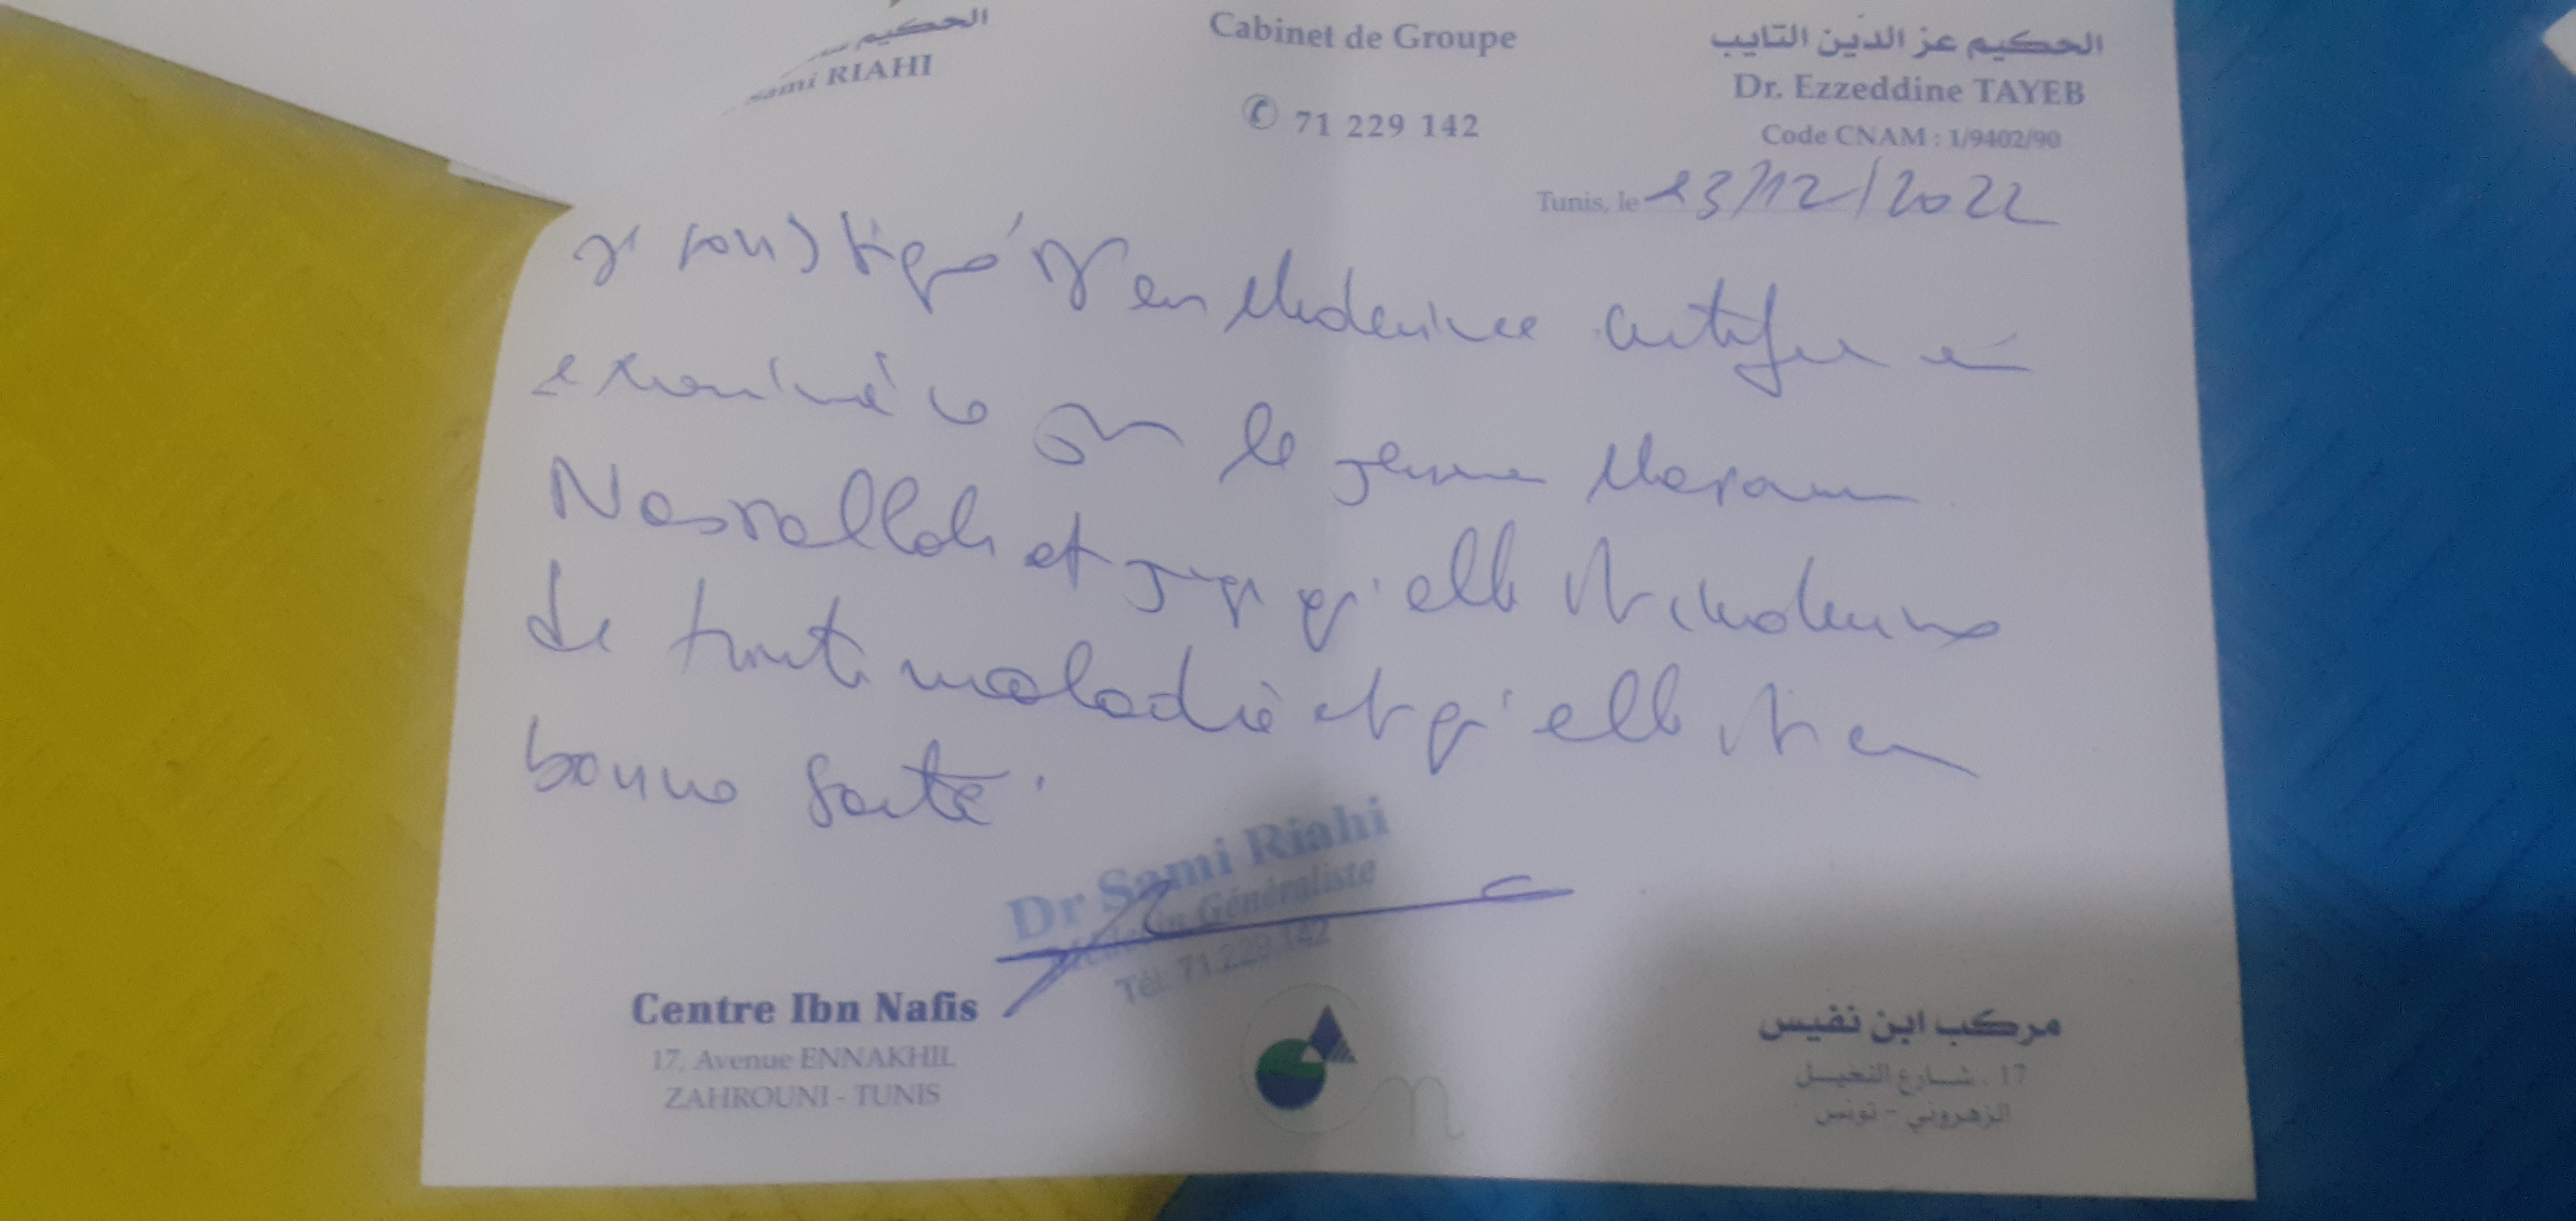 الحكيم
Sami RIAHI
Cabinet de Groupe
71 229 142
الحكيم عز الدين التايب
Dr. Ezzeddine TAYEB
Code CNAM : 1/9402/90
Tunis, le 13/12/2022
je sous signé Dr en Medecine certifie avoir
examiné ce jour la jeune Maram
Nasrallah et juge qu'elle est indemne
de toute maladie et qu'elle est en
bonne santé.
Dr Sami Riahi
Médecin Généraliste
Tél: 71.229.142
Centre Ibn Nafis
17, Avenue ENNAKHIL
ZAHROUNI - TUNIS
مركب ابن نفيس
17 . شارع النخيل
الزهروني - تونس